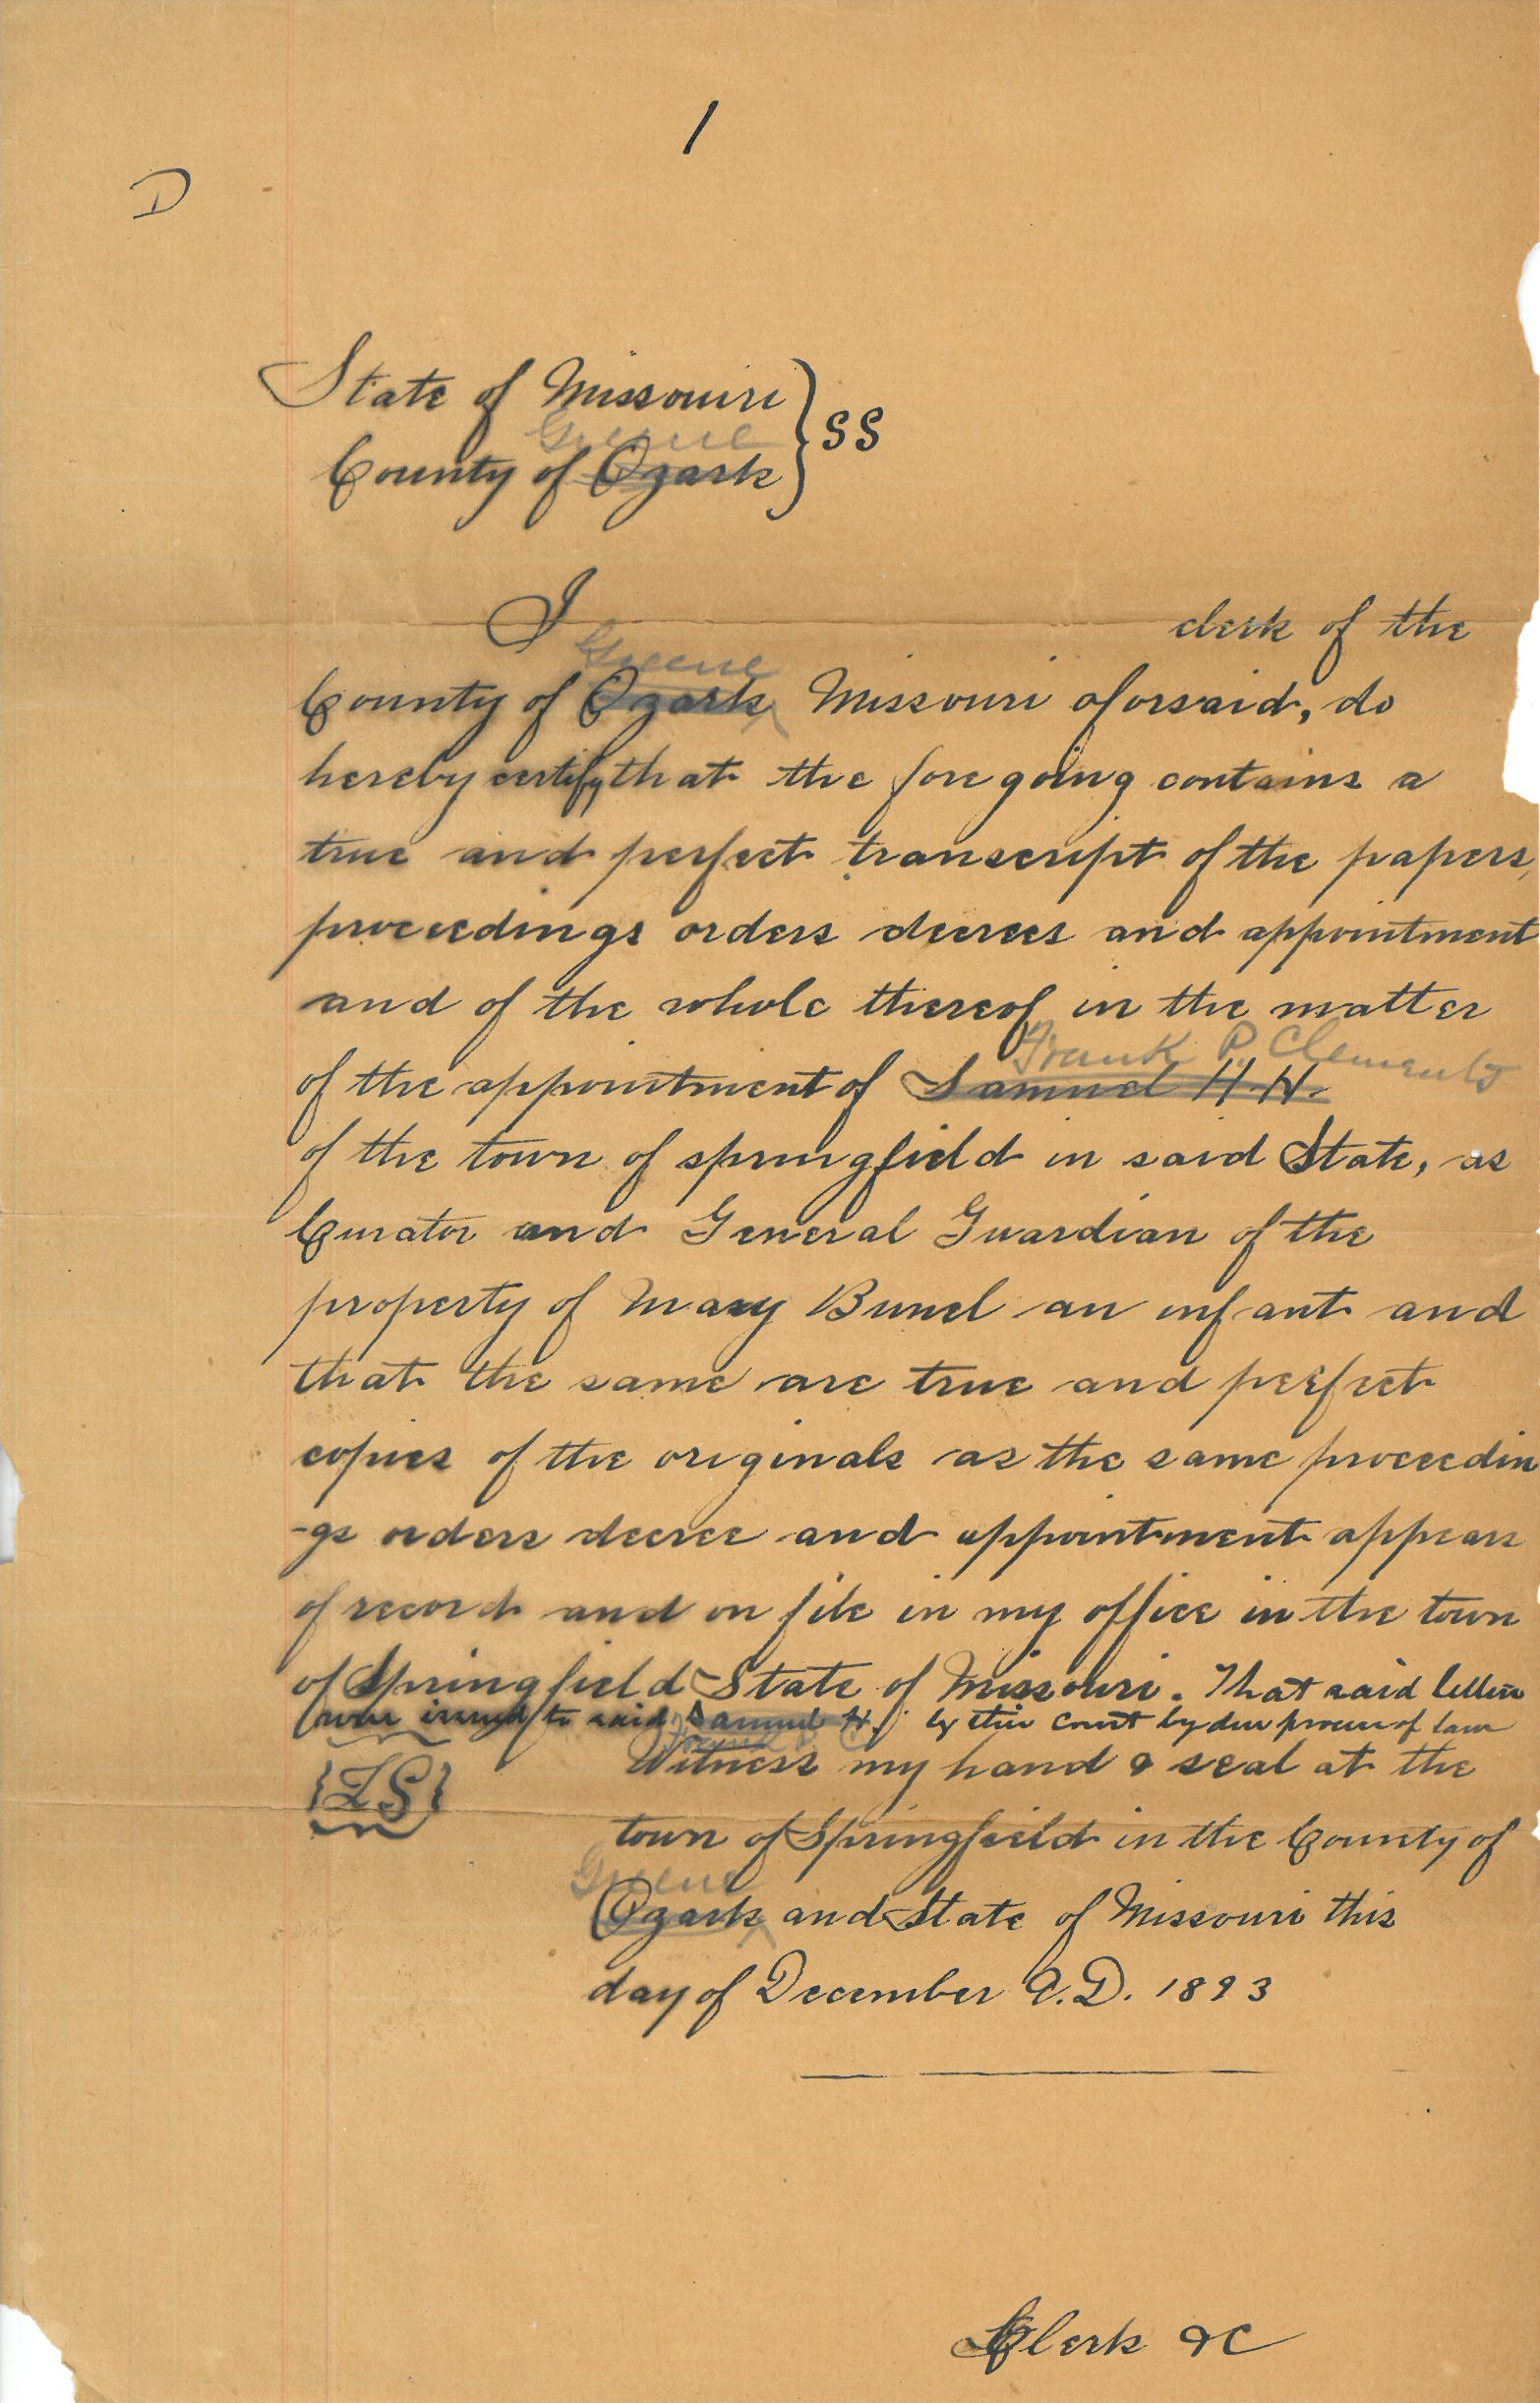 1
D
State of Missouiri } SS
Greene
County of Ozark
I clerk of the
Greene
County of Ozark Missouri aforsaid, do
hereby certify that the foregoing contains a
true and perfect transcript of the papers,
proceedings orders decrees and appointment
and of the whole thereof in the matter
Frank P. Clements
of the appointment of Samuel H. H.
of the town of springfield in said State, as
Curator and General Guardian of the
property of Mary Bunel an infant and
that the same are true and perfect
copies of the originals as the same proceedin
-gs orders decree and appointment appears
of record and on file in my office in the town
of Springfield State of Missouri. That said letters
were issued to said Samuel H. by this Court by due process of law
Frank P. C.
Witness my hand & seal at the
{LS}
town of Springfield in the County of
Greene
Ozark and State of Missouri this
day of December A.D. 1893
Clerk &C